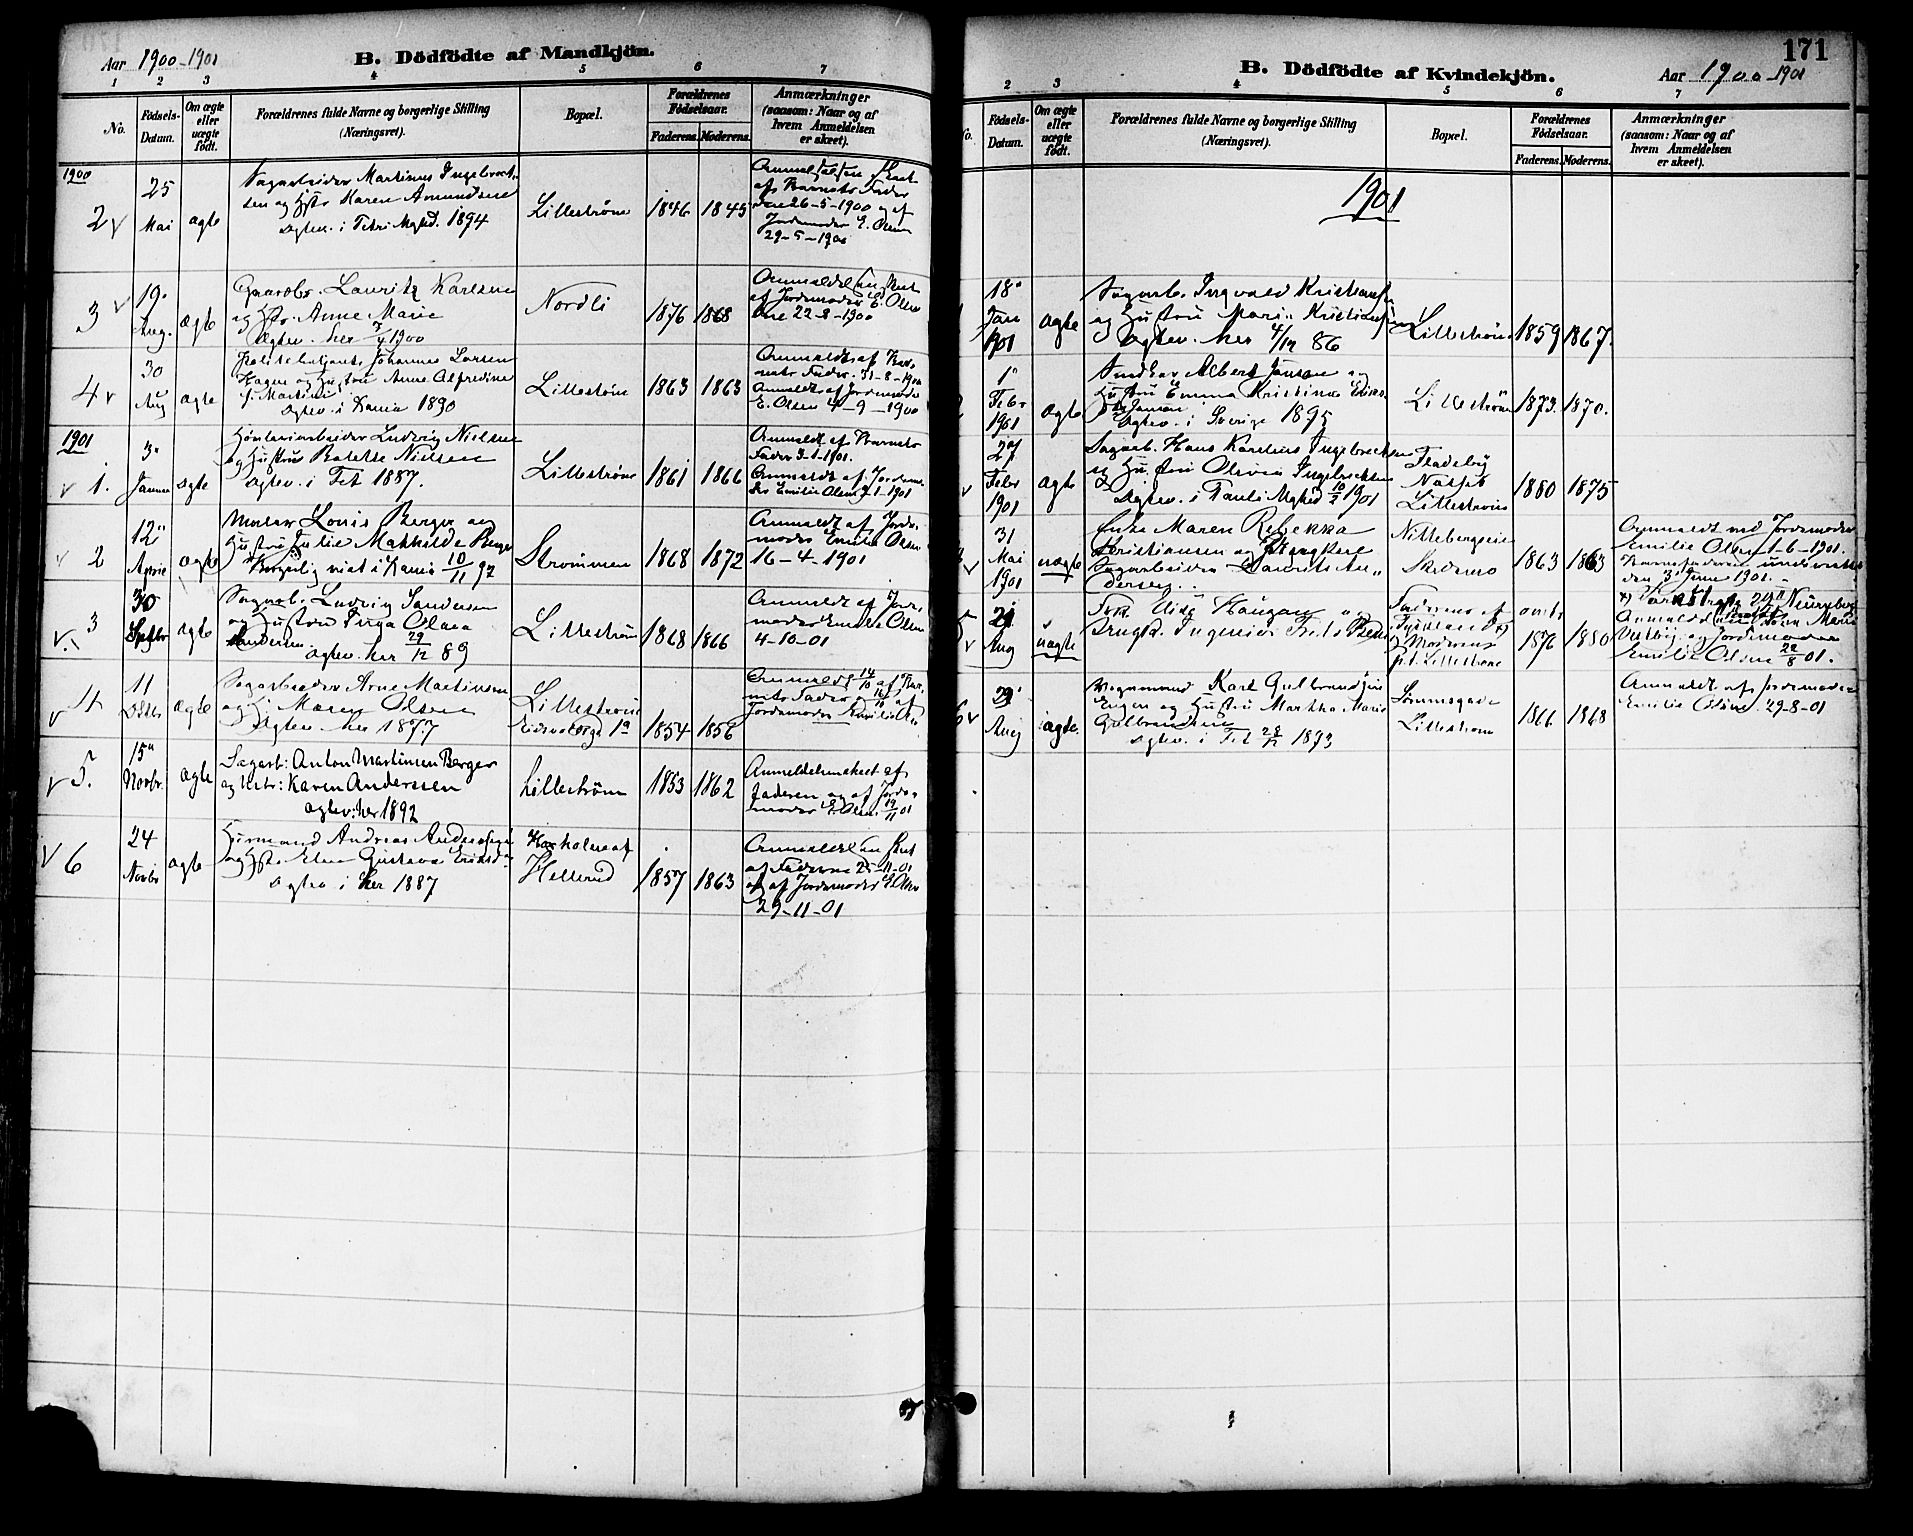 Aar 1900-1901
B. Dödfödte af Mandkjön.
1 2 3 4 5 6 7
No.
Födsels-
Datum.
Om ægte
eller
uægte
födt.
Forældrenes fulde Navne og borgerlige Stilling
(Næringsvei).
Bopæl.
Forældrenes
Födselsaar.
Faderens. Moderens.
Anmærkninger
(saasom: Naar og af
hvem Anmeldelsen
er skeet).
1900
2 25 Mai ægte
Sagarbeider Martinus Ingebrect-
sen og Hstr Karen Amundsen
ægtev. i Fetri Mghd. 1894
Lillestrøm 1846 1845
Anmeldelsen skeet
af Barnets Fader
den 26-5-1900 og af
Jordemoder E. Olsen
29-5-1900
3 19. Aug. ægte
Gaardbr. Lauritz Karlsen
og Hstr. Anne Marie
Ægtev. her 1900
Nordli 1876 1868
Anmeldelsen skeet
af Jordemoder E. Olsen
den 22-8-1900
4 30 Aug ægte
Politibetjent Johannes Larsen
Hagen og Hustru Anne Alfredine
f. Martinu
ægtev. i Kania 1890
Lillestrøm 1863 1863
Anmeldt af Bar-
nets Fader. 31-8-1900
Anmeldt af Jordemoder
E. Olsen 4-9-1900
1901
1. 3" Januar ægte
Høvleriarbeider Ludvig Nielsen
og Hustru Bolette Nielsen
Ægtev. i Fet 1887.
Lillestrøm 1861 1866
Anmeldt af Barnets
Fader 3-1-1901.
Anmeldt af Jordemo-
der Emilie Olsen 7-1-1901
2 12" April ægte
Maler Louis Berger og
Hustru Julie Mathilde Berger
Borgerlig viet i Kania 10/11 92
Strømmen 1868 1872
Anmeldt af Jorde-
moder Emilie Olsen
16-4-1901
3 30 Septbr ægte
Sagarb. Ludvig Sandersen
og Hustru Inga Olava
Sandersen
ægtev. her 29/12 89
Lillestrøm 1868 1866
Anmeldt af Jorde-
moder Emilie Olsen
4-10-01
4 11 Oktbr ægte
Sagarbeider Arne Martinsen
og Maren Olsen
Ægtev her 1877
Lillestrøm
Eidsvoldsgd 1a 1854 1856
Anmeldt 14/10 af Bar-
nets Fader 16/10 af
Jordemoder Emilie Olsen
5. 15" Novbr. ægte
Sagarb: Anton Martinsen Berger
og Hstr: Karen Anderssen
ægtev: her 1892
Lillestrøm 1853 1862
Anmeldelsen skeet af
Faderen og af Jorde-
moder E. Olsen 19/11 01
6 24 Novbr ægte
Kjørmand Andreas Anderssen
og Hstr. Elen Gustava Eriksd
ægtev i her 1887
Korkolen af
Hellerud 1857 1863
Anmeldelsen skeet
af Faderen 25-11-01
og af Jordemoder E. Olsen
29-11-01
171
B. Dödfödte af Kvindekjön.
Aar 1900-1901
2 3 4 5 6 7
No.
Födsels-
Datum.
Om ægte
eller
uægte
födt.
Forældrenes fulde Navne og borgerlige Stilling
(Næringsvei).
Bopæl.
Forældrenes
Födselsaar.
Faderens. Moderens.
Anmærkninger
(saasom: Naar og af
hvem Anmeldelsen
er skeet).
1901
18" Jan 1901 ægte
Sagarb. Ingvald Kristiansen
og Hustru Marie Kristiansen
Ægtev. her 4/12 86
Lillestrøm 1859 1867.
1" Febr 1901 ægte
Snedker Albert Janson og
Hustru Emma Kristine Eriks-
Janson
Ægtev. i Sverige 1895
Lillestrøm 1873. 1870.
27 Febr 1901 ægte
Sagarb. Hans Karelius Ingebrectsen
og Hustru Olivia Ingebrectsen
Ægtev. i Pauli Mghed 10/2 1901
Fladeby
Næsset
Lillestrøm 1880 1875
31 Mai 1901 uægte
Enke Maren Rebekka
Kristiansen og Ungkarl
Sagarbeider Laurits An-
dersen.
Nittebergseie
Skedsmo 1863 1863
Anmeldt ved Jordemoder
Emilie Olsen 1-6-1901.
Barnefaderen underrettet
den 3 Juni 1901.
5 21 Aug uægte
Frk. Elise Haugan og
Ungk. Ingeniør Fritz
Faderens af
Tyskland x)
Moderens
p.t. Lillestrøm 1876 1880
Emilie Olsen 22/8 01.
6 29 Aug ægte.
Vognmand Karl Gulbrandsen
Engen og Hustru Martha Marie
Gulbrandsen
ægtev. i Fet 28/12 1893
Lillestrøm 1866 1868
Anmeldt af Jordemoder
Emilie Olsen. 29-8-01